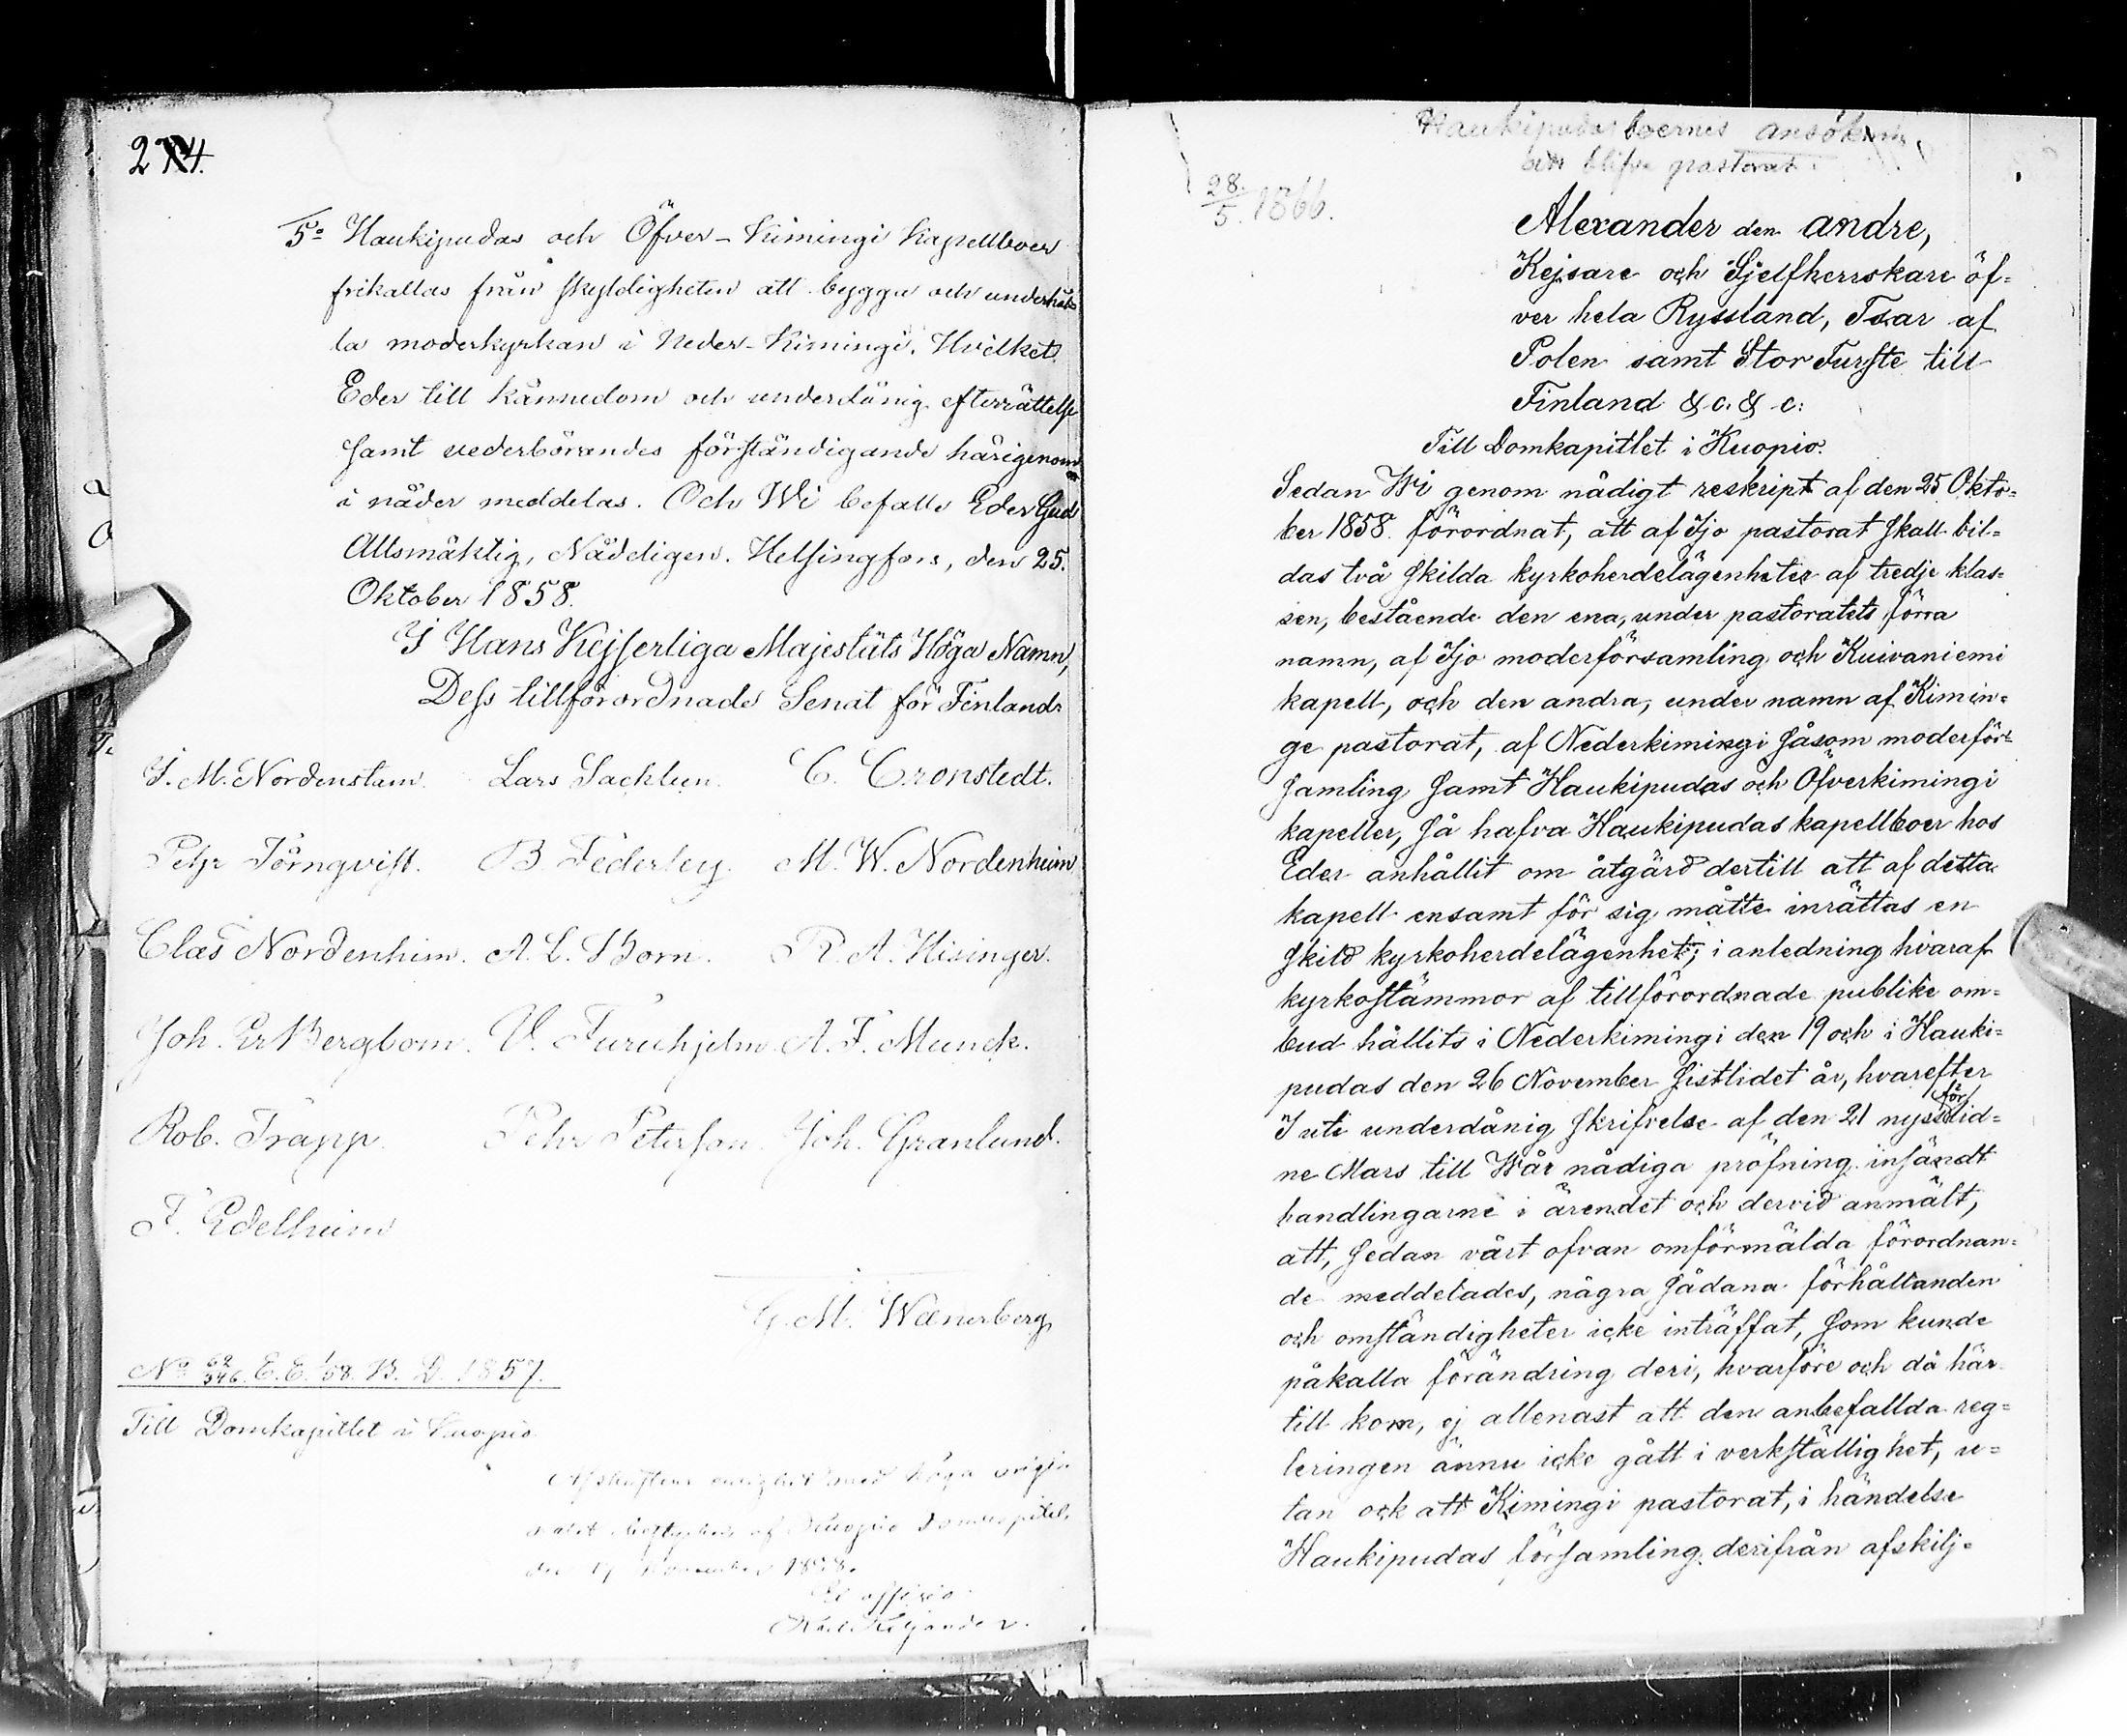 274.
5o Haukipudas och Öfver-Kimingi Kapellboer
frikallas från skyldigheten att bygga och underhål-
la moderkyrkan i Neder-Kimingi. Hvilket
Eder till kännedom och underdånig efterrättelse
samt vederbörandes förständigande härigenom
i nåder meddelas. Och Wi befalle Eder Gud
Allsmäktig, Nådeligen. Helsingfors, den 25.
Oktober 1858.
I Hans Kejserliga Majestäts Höga Namn,
Dess tillförordnade Senat för Finland:
J. M. Nordenstam. Lars Sacklen. C. Cronstedt.
Pehr Törnqvist. B. Federley. M. W. Nordenheim
Clas Nordenheim. A. L. Born. R. A. Hisinger.
Joh. Er. Bergbom. V. Furuhjelm. A. F. Munck.
Rob. Trapp. Pehr Peterson. Joh. Granlund.
F. Edelheim
G. M. Wænerberg
No 62/346. E.E. 1/58. B. D. 1857.
Till Domkapitlet i Kuopio
Afskriftens enlighet med höga origi-
nalet af Kuopio Domkapitel,
den 17 November 1858.
Ex officio
Karl Kiljander.
Haukipudas boernes ansökan,
att blifva pastorat.
28/5. 1866.
Alexander den andre,
Kejsare och Sjelfherrskare öf-
ver hela Ryssland, Tsar af
Polen samt Stor Furste till
Finland &c. &c:
Till Domkapitlet i Kuopio.
Sedan Wi genom nådigt reskript af den 25 Okto-
ber 1858 förordnat, att af Ijo pastorat skall bil-
das två skilda kyrkoherdelägenheter af tredje klas-
sen, bestående den ena, under pastoratets förra
namn, af Ijo moderförsamling och Kuivaniemi
kapell, och den andra, under namn af Kimin-
ge pastorat, af Nederkimingi såsom moderför-
samling samt Haukipudas och Öfverkimingi
kapeller, så hafva Haukipudas kapellboer hos
Eder anhållit om åtgärd dertill att af detta
kapell ensamt för sig måtte inrättas en
skild kyrkoherdelägenhet; i anledning hvaraf
kyrkostämmor af tillförordnade publike om-
bud hållits i Nederkimingi den 19 och i Hauki-
pudas den 26 November sistlidet år, hvarefter
I uti underdånig skrifvelse af den 21 nyssförlid-
ne Mars till Wår nådiga pröfning insändt
handlingarne i ärendet och dervid anmält,
att, sedan vårt ofvan omförmälda förordnan-
de meddelades, några sådana förhållanden
och omständigheter icke inträffat, som kunde
påkalla förändring deri, hvarföre och då här-
till kom, ej allenast att den anbefallda reg-
leringen ännu icke gått i verkställighet, u-
tan ock att Kimingi pastorat, i händelse
Haukipudas församling derifrån afskilj-